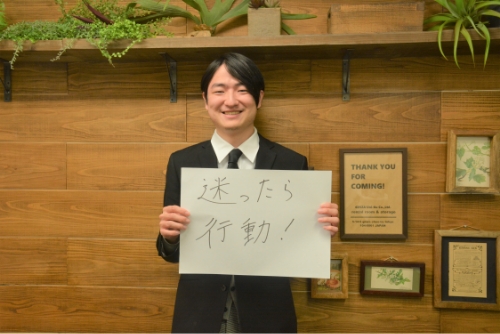 迷ったら
行動!
THANK YOU
FOR
COMING!